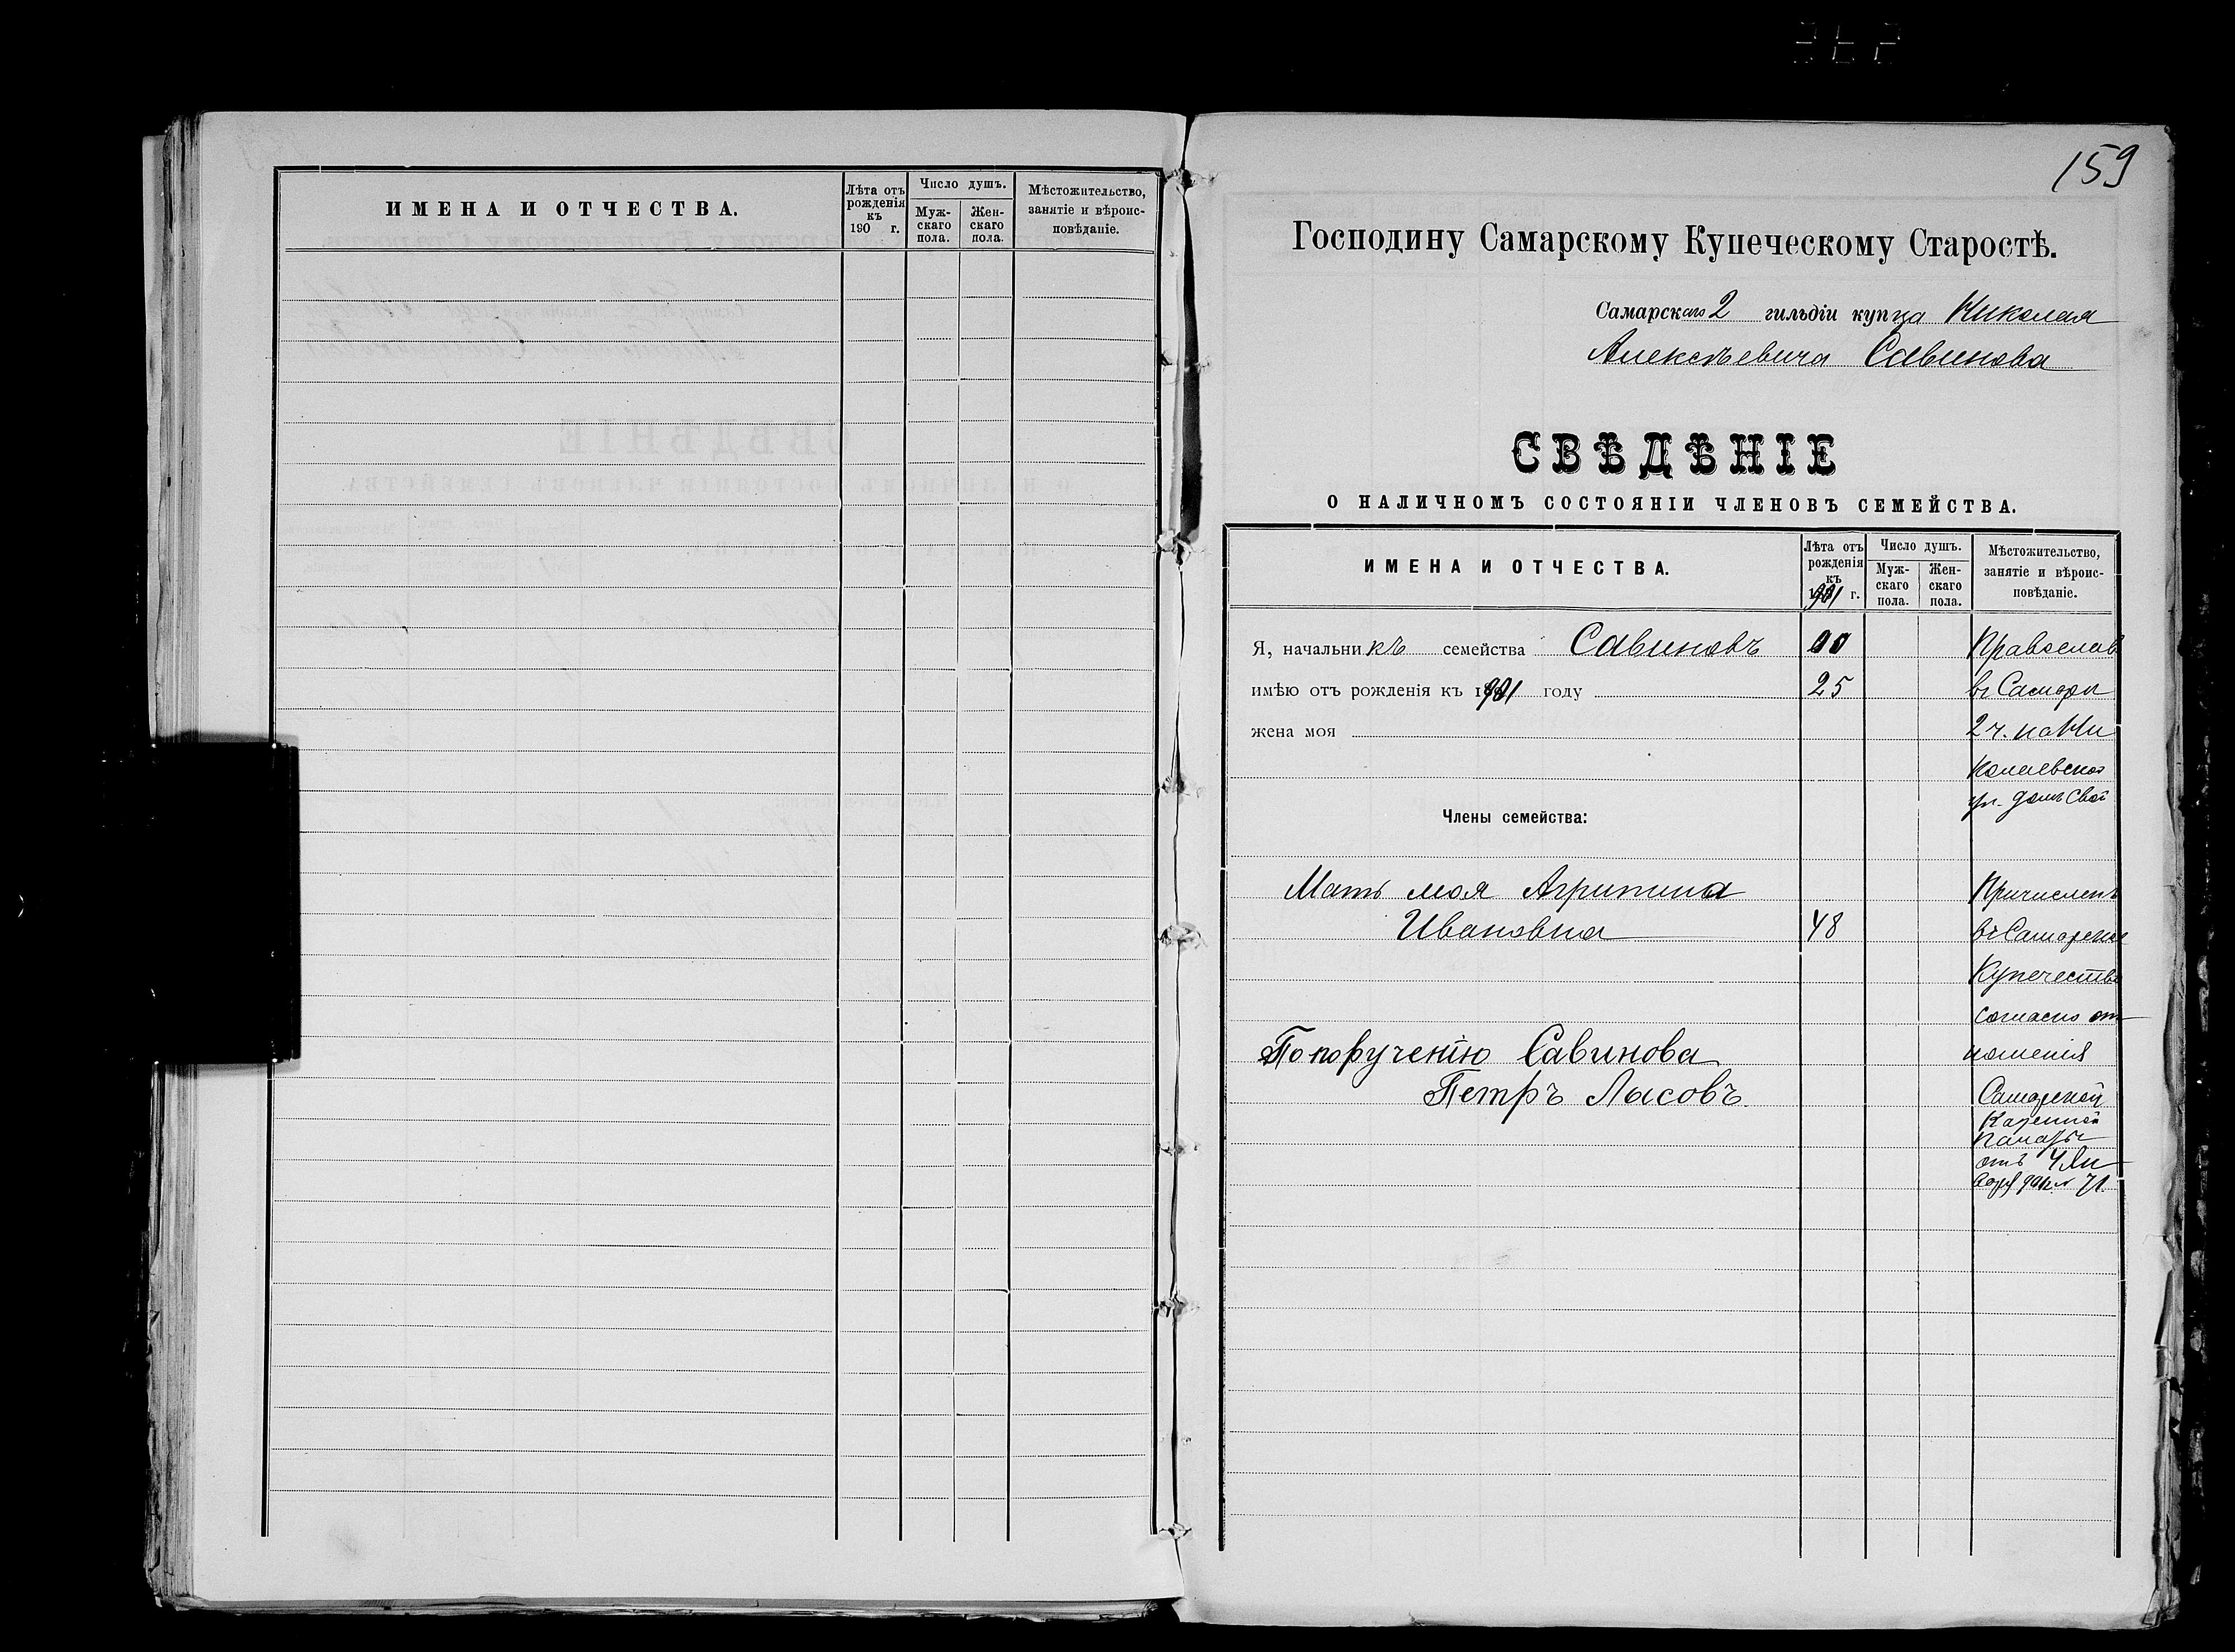 ИМЕНА И ОТЧЕСТВА.
Лѣта отъ рожденія къ 190 г.
Число душъ.
Мужскаго пола.
Женскаго пола.
Мѣстожительство, занятіе и вѣроисповѣданіе.
159
Господину Самарскому Купеческому Старостѣ.
Самарскаго 2 гильдіи купца Николая
Алексѣевича Савинова
СВѢДѢНІЕ
О НАЛИЧНОМЪ СОСТОЯНІИ ЧЛЕНОВЪ СЕМЕЙСТВА.
ИМЕНА И ОТЧЕСТВА.
Лѣта отъ
рожденія
къ
1901 г.
Число душъ.
Муж-
скаго
пола.
Жен-
скаго
пола.
Мѣстожительство,
занятіе и вѣроис-
повѣданіе.
Я, начальникъ семейства Савиновъ Православ
имѣю отъ рожденія къ 1901 году 25 въ Самары
жена моя 2 ч. по Ни
колаевской
ул. домъ свой
Члены семейства:
Мать моя Агрипина Причисленъ
Ивановна 48 въ Самарское
Купечество
согласно от-
По порученію Савинова ношенія
Петръ Лысовъ. Самарской
Казенной
Палаты
отъ 4 Ян
варя 901 г. № 71.